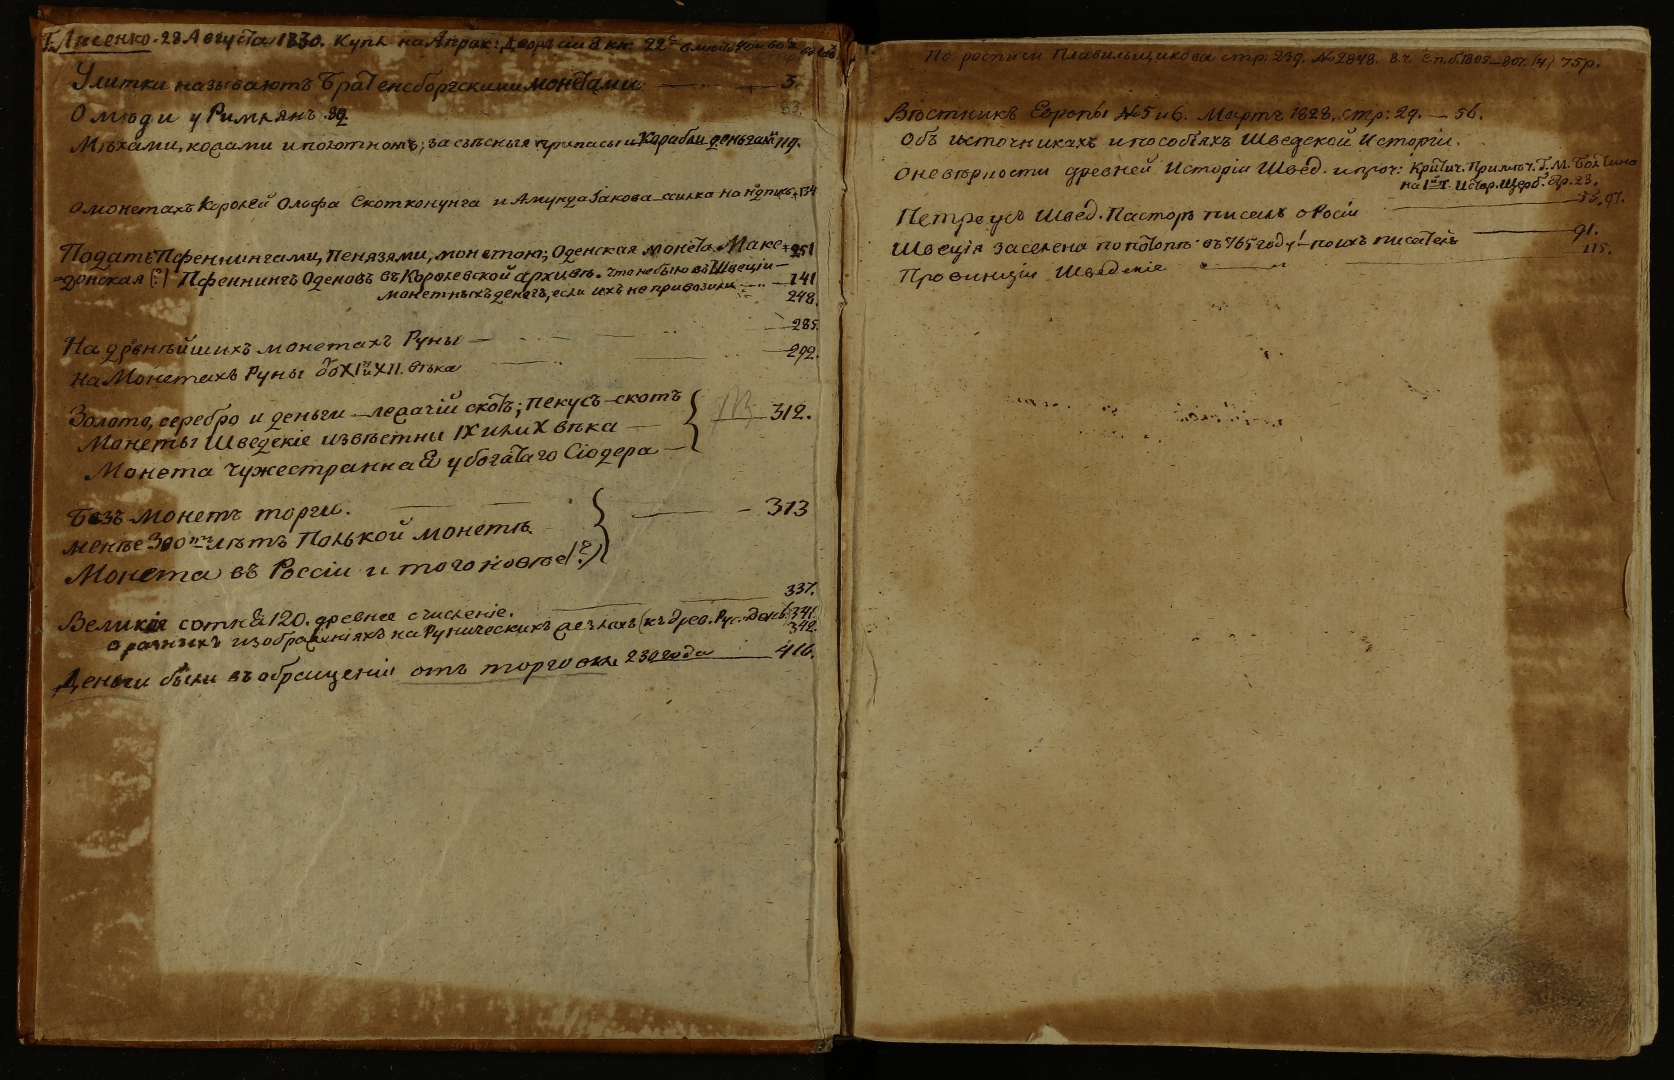 Г. Лисенко. 28 Августа 1830. Купл. на Апрак: Дворѣ
Улитки называютъ Братенсборгскими монетами 3.
О мѣди у Римлянъ. 82 83.
Мѣхами, кожами и полотномъ; за съѣсныя припасы и Корабли деньгами 119.
О монетахъ Королей Олофа Скотконунга и Амунда Іакова ссилка на 134
Подать Пфеннингами, пенязями, монетою; Оденская монета Маке- 251
донская (?) Пфеннингъ Оденовъ въ Королевской архивѣ. что небыло въ Швеціи 141
монетныхъ денегъ, если ихъ не привозили 248.
285.
На древнѣйшихъ монетахъ Руны
292.
на Монетахъ Руны до XI и XII. вѣка
Золото, серебро и деньги лежачій скотъ; пекусъ-скотъ 312.
Монеты Шведскіе извѣстны IX или X вѣка
Монета чужестранная у богатаго Сіодера
Безъ монетъ торги. 313
менѣе 300 лѣтъ Польской монетѣ
Монета въ Россіи и того новѣе (?)
337.
Великая сотня 120. древнее счисленіе. 341.
о разныхъ изображеніяхъ на Руническихъ жезлахъ (къ древ. Рус. День.) 342.
Деньги были въ обращеніи отъ торговли 230 года 416.
По росписи Плавильщикова стр: 239. № 2848. 8 ч. С.п.б. 1805-807. (ч) 75 р.
Вѣстникъ Европы № 5 и 6. Мартъ 1828. стр: 29. — 56.
Объ источникахъ и пособіяхъ Шведской Исторіи.
О невѣрности древней Исторіи Швед. и проч: Критич. Примѣч. Г. М. Болтина
на I й т. Истор. Щерб. стр. 23.
97.
Петреусъ Швед. Пасторъ писалъ о Росіи
91.
Швеція заселена по потопѣ въ 765 году! по ихъ писателъ
115.
Провинціи Шведскіе